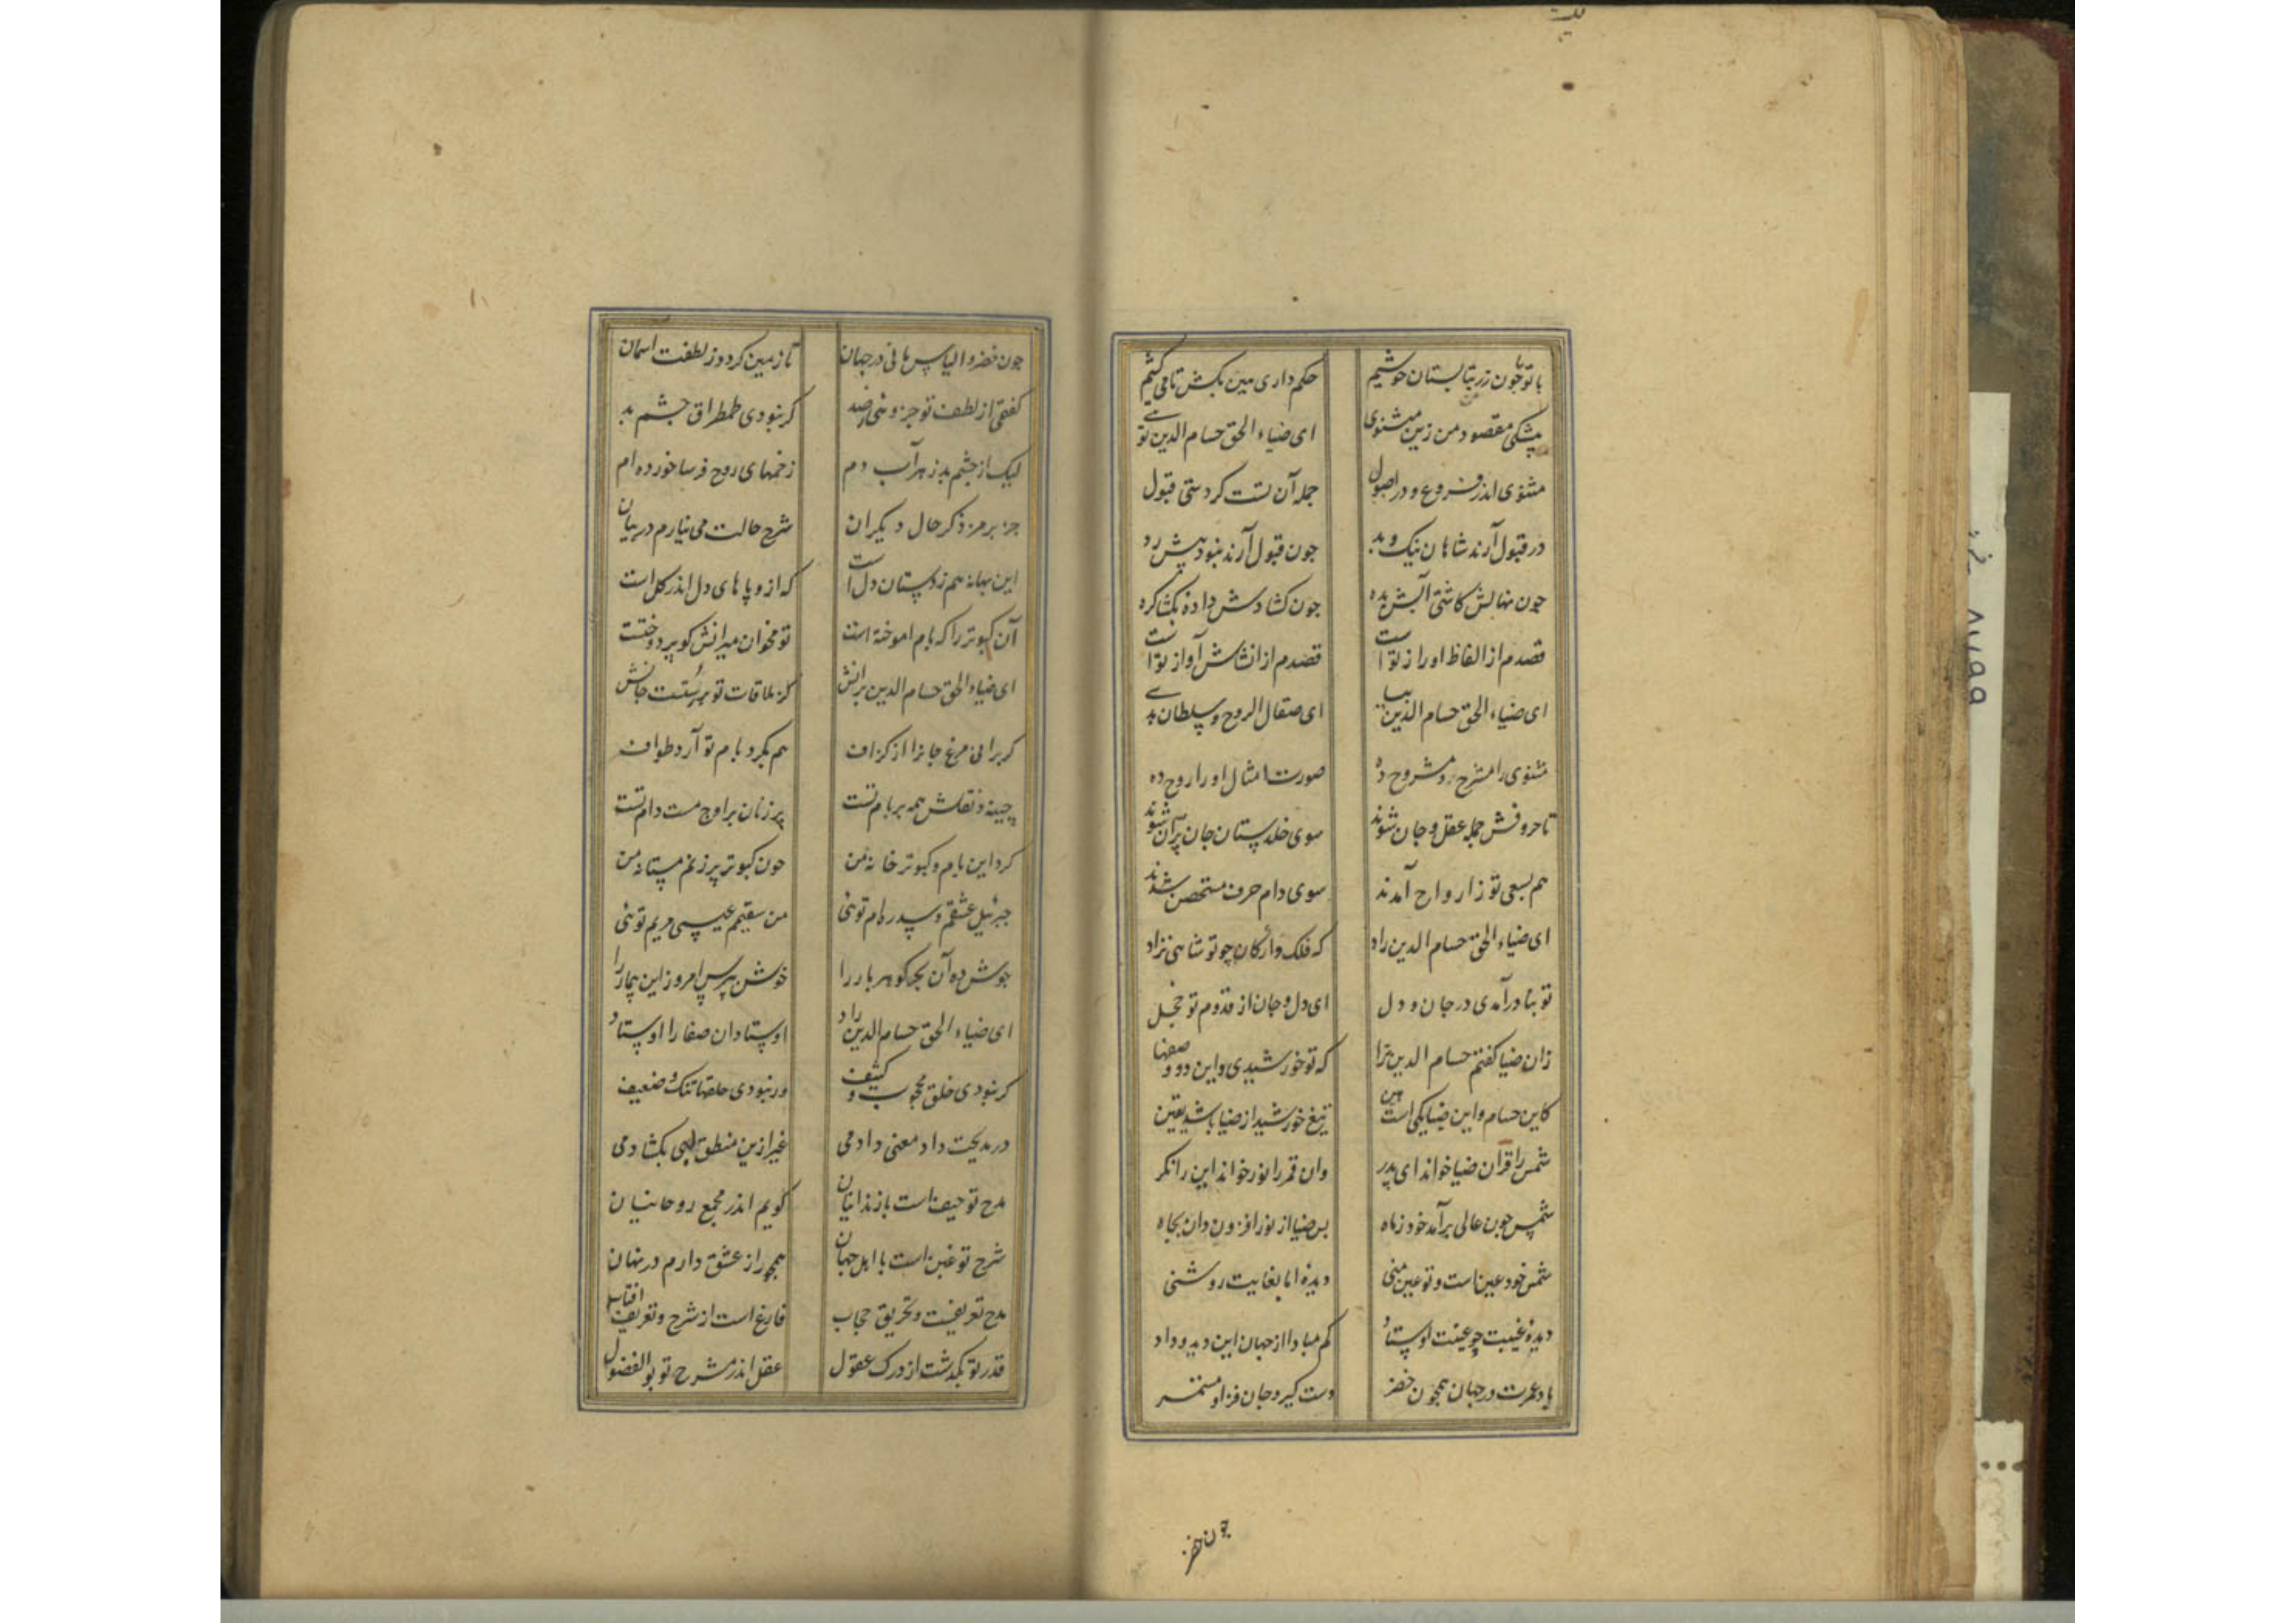 با تو ما چون رز بتابستان خوشیم حکم داری هین بکش تا می کشیم
همچنین مقصود من زین مثنوی ای ضیاء الحق حسام الدین توی
مثنوی اندر فروع و در اصول جمله آن تست کردستی قبول
در قبول آرند شاهان نیک و بد چون قبول آرند نبود بیش رد
چون نهالش کاشتی آبش بده چون کشادش داده بکشا کره
قصدم از الفاظ او راز تو است قصدم از انشاش آواز تو است
ای ضیاء الحق حسام الدین بیا ای صقال الروح و سلطان
مثنوی را مسرح مشروح ده صورت امثال او را روح ده
تا حروفش جمله عقل و جان شوند سوی خلدستان جان پران شوند
هم بسعی تو ز ارواح آمدند سوی دام حرف مستحصن شدند
ای ضیاء الحق حسام الدین راد که فلک و ارکان چو تو شاهی نزاد
تو بنا در آمدی در جان و دل ای دل و جان از قدوم تو خجل
زان ضیا کفتم حسام الدین ترا که تو خورشیدی و این دو وصفها
کاین حسام و این ضیا یکی است هین تیغ خورشید از ضیا باشد یقین
شمس را قرآن ضیا خواند ای پدر وان قمر را نور خواند این را نکر
شمس چون عالی برآمد خود ز ماه بس ضیا از نور افزون دان بجاه
شمس خود عین است و تو عین منی دیده اما بغایت روشنی
دیده غیبت چو عینت اوستاد کم مبادا از جهان این دید و داد
باد عمرت در جهان همچون خضر دست کیر و جان فزا و مستمر
چون خضر
چون خضر و الیاس مانی در جهان تا زمین کردد ز لطفت آسمان
کفتمی از لطف تو جزوی ز صد کر نبودی طمطراق چشم بد
لیک از چشم بد زهر آب دم زخمهای روح فرسا خورده ام
جز برمز ذکر حال دیکران شرح حالت می نیارم در بیان
این بهانه هم ز دستان دل است که ازو پاهای دل اندر کل است
آن کبوتر را که بام اموخته است تو مخوان میرانش کو پر دوختست
ای ضیاء الحق حسام الدین برانش کز ملاقات تو بر رستست جانش
کر برانی مرغ جانرا از کزاف هم بکرد بام تو آرد طواف
چینه و نقلش همه بر بام تست پر زنان بر اوج مست دام تست
کرد این بام و کبوتر خانه من چون کبوتر پر زنم مستانه من
جبرئیل عشقم و سدره ام توئی من سقیمم عیسی مریم توئی
جوش ده آن بحر کوهر بار را خوش بپرس امروز این بیمار را
ای ضیاء الحق حسام الدین راد اوستادان صفا را اوستاد
کر نبودی خلق محجوب و کثیف ور نبودی حلقها تنک و ضعیف
در مدیحت داد معنی دادمی غیر ازین منطق لبی بکشادمی
مدح تو حیف است با زندانیان کویم اندر مجمع روحانیان
شرح تو غبن است با اهل جهان همچو راز عشق دارم در نهان
مدح تعریفست و تخریق حجاب فارغ است از شرح و تعریف افتاب
قدر تو بکذشت از درک عقول عقل اندر شرح تو بو الفضول